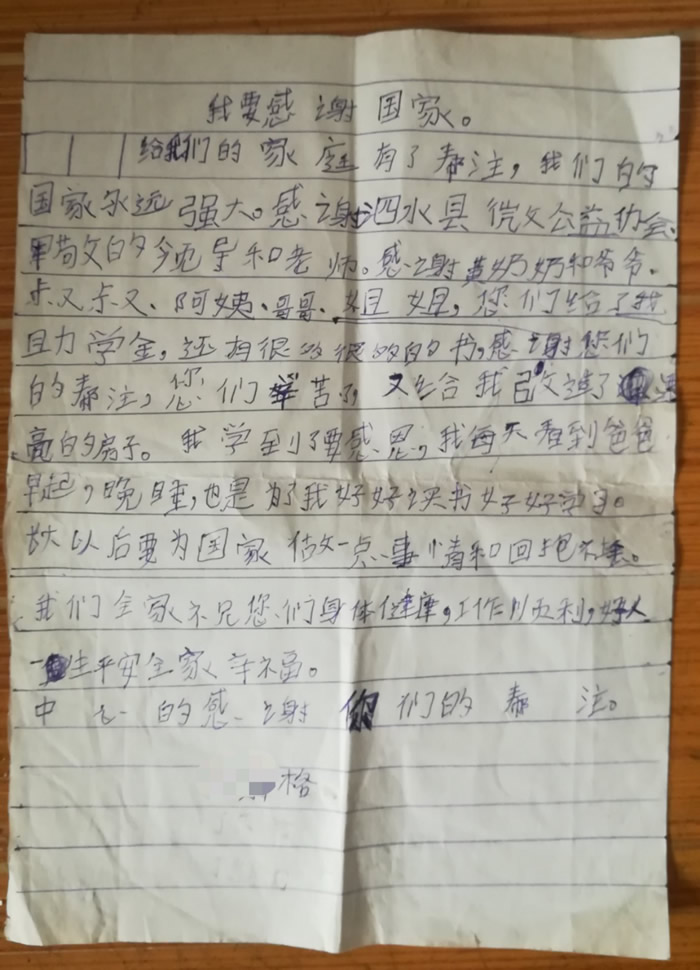 我要感谢国家。
给我们的家庭有了帮注，我们的
国家永远强大。感谢泗水县微文公益协会。
敬的领导和老师。感谢黄奶奶和爷爷、
叔叔、阿姨、哥哥、姐姐，您们给了我
助学金，还有很多很多的书，感谢您们
的帮注，您们辛苦了，又给我改造了漂
亮的房子。我学到了要感恩，我每天看到爸爸
早起，晚睡，也是为了我好好读书好好学习。
长大以后要为国家做一点事情和回报社会。
我们全家祝您们身体健康，工作顺利，好人
一生平安全家幸福。
中心的感谢你们的帮注。
格